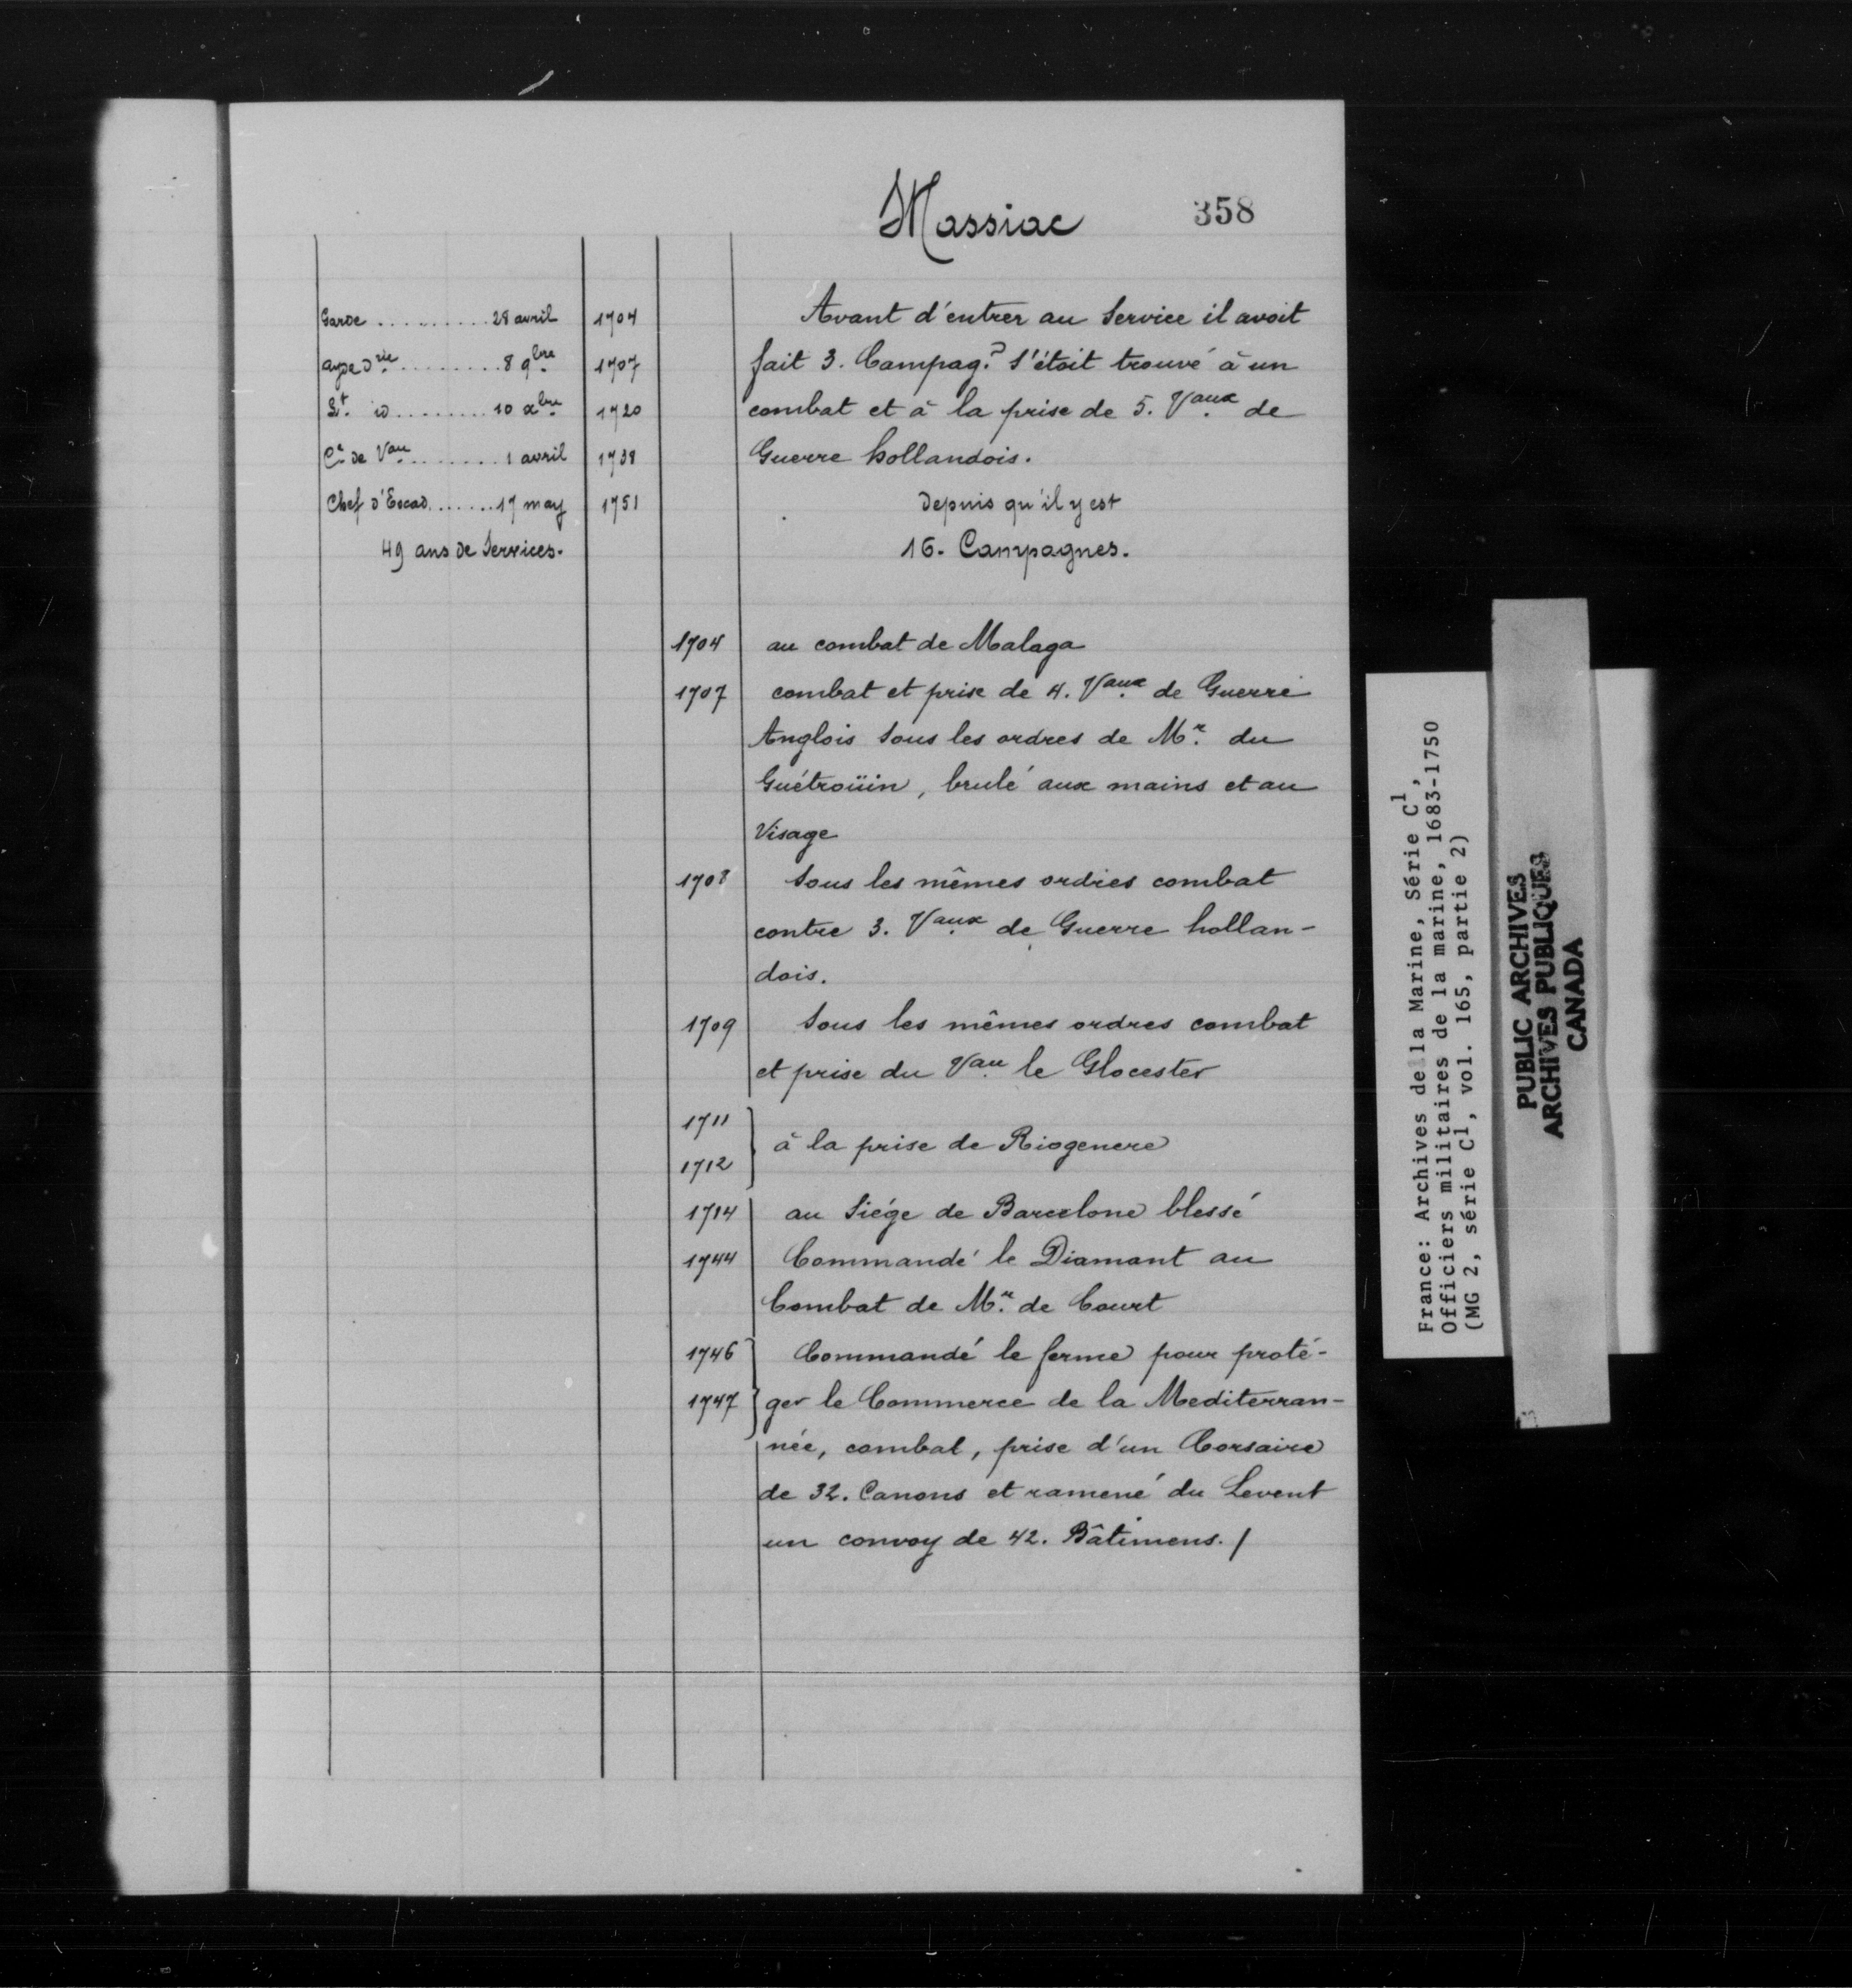 Massiac 358
Garde .......... 28 avril 1704
ayde d'rie ......... 8 9bre 1707
Lt. id ......... 10 xbre 1720
Cne de Vau ......... 1 avril 1738
Chef d'Escad ....... 17 may 1751
49 ans de Services.
Avant d'entrer au Service il avoit
fait 3. Campag.? s'étoit trouvé à un
combat et à la prise de 5. Vaux de
Guerre hollandois.
Depuis qu'il y est
16. Campagnes.
1704 au combat de Malaga
1707 combat et prise de 4. Vaux de Guerre
Anglois sous les ordres de Mr. du
Guétroüin, brulé aux mains et au
Visage
1708 Sous les mêmes ordres combat
contre 3. Vaux de Guerre hollan-
dois.
1709 Sous les mêmes ordres combat
et prise du Vau le Glocester
1711
1712 } à la prise de Riogenere
1714 au Siége de Barcelone blessé
1744 Commandé le Diamant au
Combat de Mr. de Court
1746 Commandé le ferme pour proté-
1747 } ger le Commerce de la Mediterran-
née, combat, prise d'un Corsaire
de 32. Canons et ramené du Levent
un convoy de 42. Bâtimens. /
France: Archives de la Marine, Série C1,
Officiers militaires de la marine, 1683-1750
(MG 2, série C1, vol. 165, partie 2)
PUBLIC ARCHIVES
ARCHIVES PUBLIQUES
CANADA